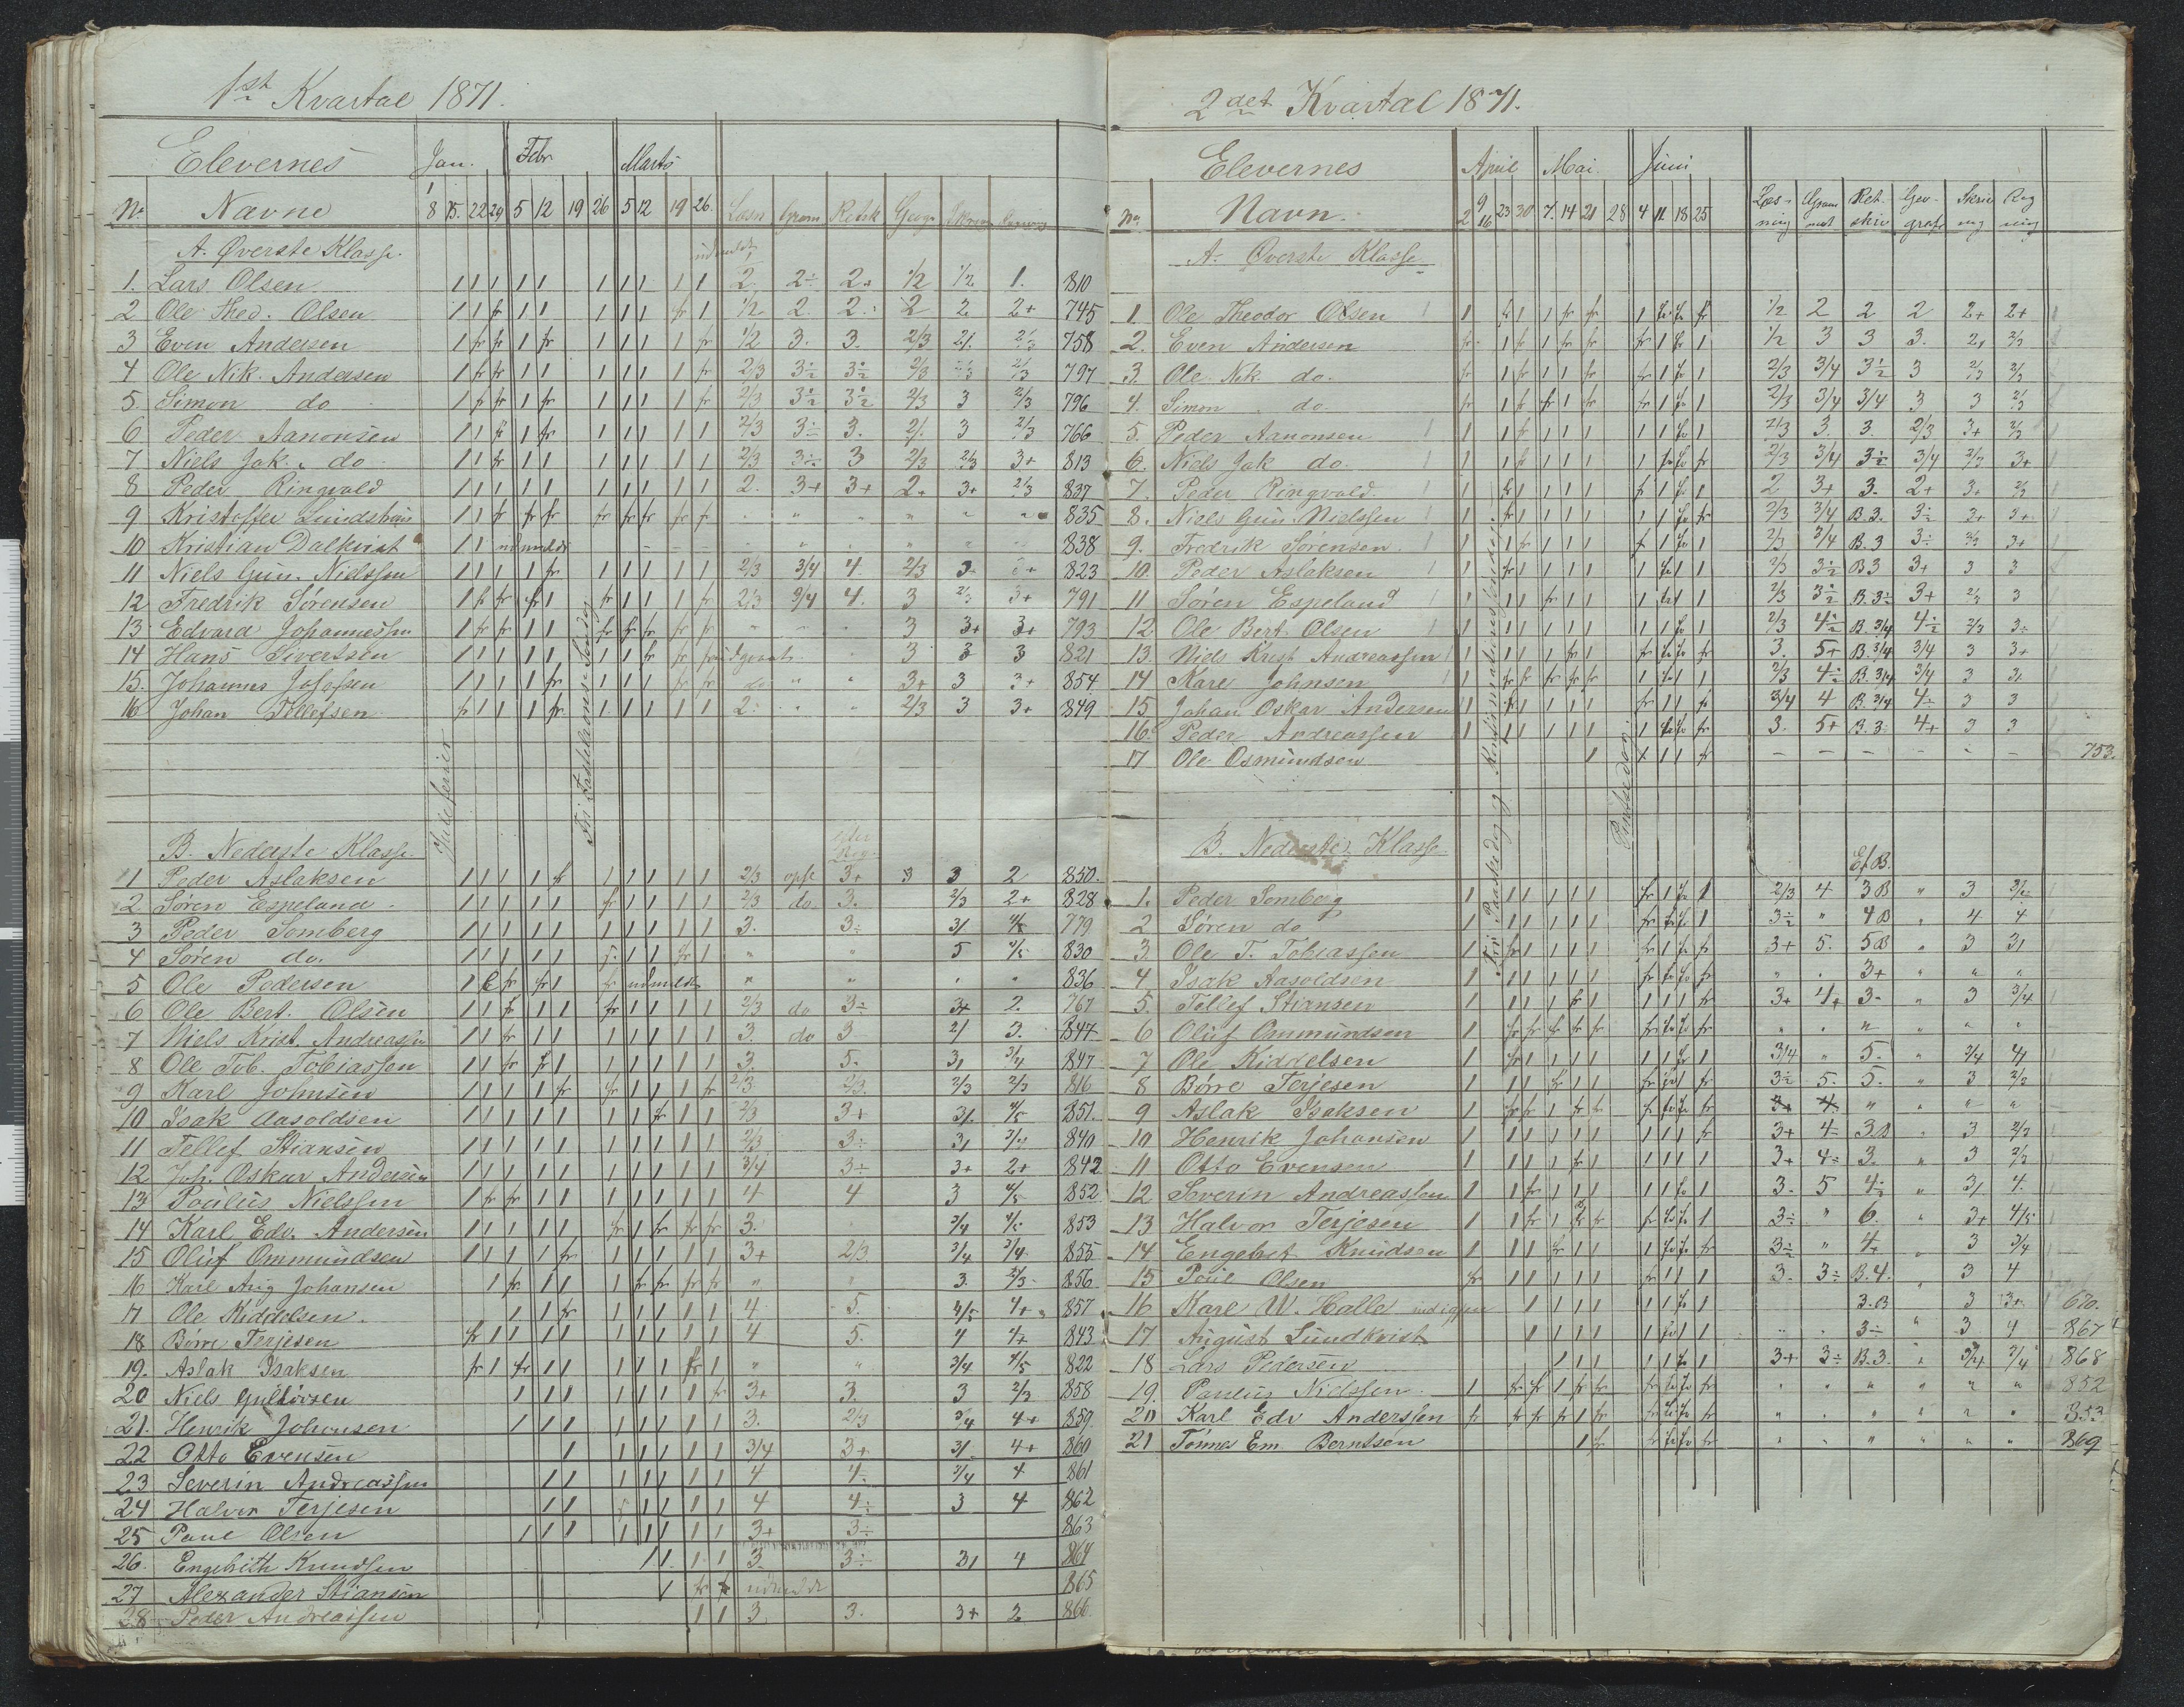 1st Kvartal 1871.
Elevernes Jan. Febr Marts
No. Navne 8 15. 22 29 5 12 19 26 5 12 19 26. Læsn Gram Retsk Geogr Skrivn
A. Øverste Klasse. udmeldt
1. Lars Olsen 1 1 1 1 1 1 1 1 1 1 2. 2÷ 2. 1/2 1/2 1. 810
2 Ole Thed. Olsen 1 1 fr 1 1 1 1 1 fr 1 1/2 2. 2. 2 2. 2+ 745
3 Even Andersen 1 fr fr 1 fr 1 1 1 1 fr 1/2 3. 3. 2/3 758
4 Ole Nik. Andersen 1 fr fr 1 1 1 1 1 1 fr 2/3 3÷ 3÷ 2/3 2/3 2/3 797
5. Simon do 1 fr fr 1 fr 1 1 1 1 fr 2/3 3÷ 3÷ 2/3 3 2/3 796
6 Peder Aanonsen 1 1 fr 1 fr 1 1 1 1 1 2/3 3÷ 3. 3 2/3 766
7 Niels Jak. do 1 1 fr 1 1 1 1 1 1 1 2/3 3÷ 3 2/3 2/3 3+ 813
8 Peder Ringvold 1 1 1 1 1 1 1 1 1 1 2. 3+ 3+ 2+ 3+ 2/3 837
9 Kristoffer Lindstrøm 1 1 fr fr fr fr fr fr fr fr 835
10 Kristian Dalkvist 1 1 udmeldt 838
11 Niels Gun. Nielssen 1 1 1 1 fr 1 1 1 1 1 2/3 3/4 4. 2/3 3 823
12 Fredrik Sørensen 1 fr fr fr 1 fr 1 1 1 fr 2/3 3/4 4. 3 2/3 3+ 791
13 Edvard Johannessen 1 fr fr 1 1 fr fr fr fr fr 3 3+ 3+ 793
14 Hans Sivertsen 1 1 1 1 1 1 1 fr fr fr udgaat 3 3 3 821
15. Johannes Josefsen 1 1 1 1 fr 1 1 1 fr fr do 3+ 3 3+ 854
16 Johan Tellefsen fr 1 1 1 fr 1 1 1 1 1 2. 2/3 3 3+ 849
Juleferier
Fri Fastelavns Søndag
B. Nederste Klasse.
1 Peder Aslaksen 1 1 1 1 fr 1 1 1 1 1 2/3 opl 3+ 3 3 2 850.
2 Søren Espeland 1 1 1 1 1 fr 1 1 1 1 2/3 do 3. 2/3 2+ 828
3 Peder Somberg 1 1 1 1 1 1 1 1 1 1 3. 3÷ 779
4 Søren do. 5 4/5 830
5 Ole Pedersen fr udmeldt 836
6 Ole Bert. Olsen 1 1 fr 1 1 fr 1 1 1 1 2/3 do 3÷ 3+ 2. 767
7 Niels Krist. Andreassen 1 1 fr 1 1 1 1 1 1 1 3. do 3 3. 844
8 Ole Tob. Tobiassen 1 1 fr fr 1 1 1 1 1 1 3. 5. 3/4 847
9 Karl Johnsen 1 1 1 1 fr fr 1 1 1 fr 2/3 2/3 2/3 2/3 816
10 Isak Aasoldsen 1 1 1 1 1 1 1 fr 1 1 2/3 3+ 4/5 851.
11 Tellef Stiansen 1 1 1 1 1 1 1 1 1 1 2/3 3÷ 840
12 Joh. Oskar Andersen 1 1 1 1 1 1 1 1 1 1 3/4 3÷ 3+ 2+ 842
13 Paulus Nielssen 1 fr fr 1 1 1 1 1 1 1 4 4 3 4/5 852
14 Karl Edv. Andersen 1 1 1 1 1 fr 1 fr fr fr 3. 3/4 4/5 853
15 Oluf Ommundsen 1 1 1 1 fr 1 1 1 1 1 3+ 2/3 3/4 3/4 855
16 Karl Aug Johansen 1 fr 1 1 1 fr fr fr fr 3. 2/3 856
17 Ole Kiddelsen. 1 1 fr 1 1 1 1 1 4 5. 4/5 4+ 857
18 Børre Terjesen fr 1 1 1 1 1 1 1 1 1 4 5. 4 4+ 843
19. Aslak Isaksen fr 1 fr 1 1 1 1 1 fr 1 3/4 4/5 822
20 Niels Gullovsen 1 1 1 1 1 1 1 fr 3+ 3. 3 2/3 858
21. Henrik Johansen 1 1 1 1 1 1 1 1 3. 2/3 3/4 4+ 859
22 Otto Evensen 1 1 1 1 1 1 3/4 3+ 4+ 860
23 Severin Andreassen 1 1 1 1 1 1 1 4 4. 3/4 4 861
24 Halvor Terjesen 1 1 1 1 1 1 4 4÷ 3 4 862
25 Paul Olsen 1 1 1 1 1 1 1 1 3+ 3÷ 863
26. Engebreth Knudsen 1 1 1 1 3. 3÷ 4 864
27 Alexander Stiansen 1 fr fr udmeldt 865
28 Peder Andreassen 1 1 3. 3. 3+ 2 866.
2det Kvartal 1871.
Elevernes April Mai. Juni
No. Navn. 2 9 16 23 30 7. 14 21 28 4 11 18 25 Læsning Gram Retskriv Geograf Skrivning Regning
A. Øverste Klasse
1. Ole Theodor Olsen 1 fr 1 1 fr fr 1 fr fr fr 1/2 2 2 2 2+ 2+
2. Even Andersen fr 1 fr 1 fr fr fr 1 fr 1 1/2 3 3 3. 2/3
3. Ole Nik. do. fr 1 fr 1 1 fr fr 1 fr 1 2/3 3/4 3÷ 3 2/3 2/3
4. Simon do. fr 1 fr fr 1 fr fr 1 fr 1 2/3 3/4 3/4 3 3 2/3
5. Peder Aanonsen 1 1 fr 1 1 1 1 1 fr 1 2/3 3. 3. 2/3 3+ 2/3
6. Niels Jak do. 1 1 fr 1 1 1 1 fr fr fr 2/3 3/4 3÷ 3/4 2/3 3+
7. Peder Ringvold. 1 fr 1 1 1 1 fr 1 fr 1 2 3+ 3. 2+ 3+ 2/3
8. Niels Gun. Nielssen 1 fr 1 1 1 1 1 1 fr fr 2/3 3/4 B.3. 3÷ 3+ 3+
9. Fredrik Sørensen. 1 1 fr 1 1 1 fr 1 fr 1 2/3 3/4 B.3 3÷ 2/3 3+
10. Peder Aslaksen 1 fr 1 1 1 1 1 fr 1 1 2/3 3÷ B3 3+ 3 3
11 Søren Espeland 1 1 1 fr 1 1 1 fr 1 1 2/3 3÷ B.3÷ 3+ 2/3 3
12 Ole Bert. Olsen 1 1 1 1 1 1 1 1 fr 1 2/3 4÷ B.3/4 4÷ 2/3 3÷
13. Niels Krist Andreassen 1 1 1 1 fr 1 fr fr fr fr 3. 5+ B.3/4 3/4 3 3+
14 Karl Johnsen 1 fr fr fr fr fr 1 fr 1 1 2/3 4÷ B.3/4 3/4 3
15 Johan Oskar Andersen 1 fr 1 1 1 1 fr 1 1 fr 3/4 4 B.3/4 4÷ 3 3
16. Peder Andreassen 1 1 1 1 1 1 1 fr fr fr 3. 5+ B.3 4+ 3 3
17 Ole Osmundsen 1 1 1 fr 753.
Fri Paaskedag og Konfirmationssøndag
Pintsedag
B. Nederste Klasse
Ef B.
1. Peder Somberg 1 1 1 1 1 1 fr 1 fr 1 2/3 4 3B " 3
2 Søren do 1 1 1 1 1 1 fr fr fr 1 3÷ " 4B " 4 4
3. Ole T. Tobiassen 1 fr 1 1 1 1 fr 1 fr fr 3+ 5. 5B " 3
4 Isak Aasoldsen 1 1 1 1 1 1 fr fr fr fr " " 3+ " " "
5. Tellef Stiansen 1 1 1 1 fr 1 1 1 1 fr 3+ 4+ 3- " 3 3/4
6 Oluf Ommundsen 1 fr fr fr fr fr fr fr fr fr " " " " " "
7 Ole Kiddelsen 1 fr 1 1 1 1 1 1 fr 1 3/4 " 5. " 3/4
8 Børre Terjesen 1 1 1 fr 1 1 3÷ 5. 5. " 3
9 Aslak Isaksen 1 fr fr 1 fr fr fr fr fr fr " " " "
10 Henrik Johansen 1 1 1 1 1 1 1 1 1 fr 3+ 4- 3B " 3 2/3
11 Otto Evensen 1 1 1 1 fr 1 1 1 1 1 3+ 4÷ 3. " 3 2/3
12 Severin Andreassen 1 1 fr 1 1 1 1 1 fr 1 3. 5 4÷ " 4.
13 Halvor Terjesen 1 1 fr 1 fr fr fr fr fr 1 3÷ " 6. " 3+ 4/5
14 Engebret Knudsen 1 1 1 fr 1 1 1 fr fr fr 3÷ " 4+ " 3 3/4
15 Poul Olsen fr 1 1 1 1 1 fr 1 1 1 3. 3÷ B.4. " 3 4
16 Karl W. Halle ind igjen 1 1 1 1 1 1 fr 1 3.B 3 3+ 670.
17 August Lundkvist 1 1 1 1 1 fr 1 1 " " 3÷ " 3 4 867
18 Lars Pedersen 1 1 1 1 1 fr 1 3+ 3÷ B.3. " 3/4 3/4 868
19. Paulus Nielssen. 1 fr fr 1 fr fr fr fr fr fr " " " " " " 852
20 Karl Edv Anderssen fr fr fr fr 1 fr fr fr fr fr " " " " " " 853
21 Tønnes Em Berntsen 1 fr fr fr fr fr " " " " " " 869